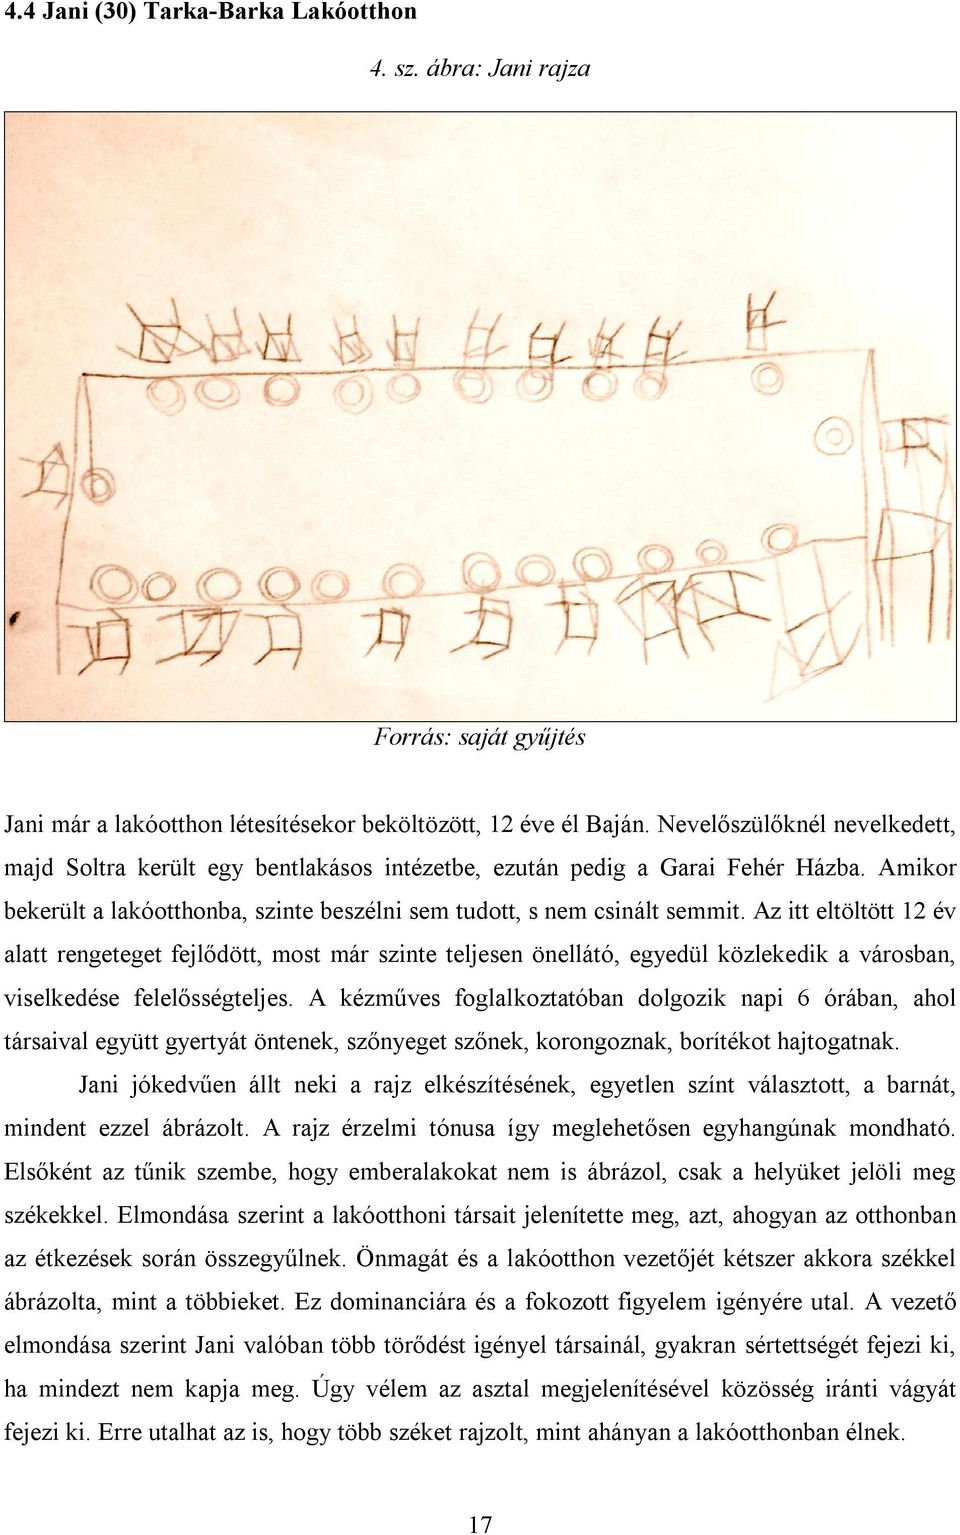 4.4 Jani (30) Tarka-Barka Lakóotthon
4. sz. ábra: Jani rajza
Forrás: saját gyűjtés
Jani már a lakóotthon létesítésekor beköltözött, 12 éve él Baján. Nevelőszülőknél nevelkedett,
majd Soltra került egy bentlakásos intézetbe, ezután pedig a Garai Fehér Házba. Amikor
bekerült a lakóotthonba, szinte beszélni sem tudott, s nem csinált semmit. Az itt eltöltött 12 év
alatt rengeteget fejlődött, most már szinte teljesen önellátó, egyedül közlekedik a városban,
viselkedése felelősségteljes. A kézműves foglalkoztatóban dolgozik napi 6 órában, ahol
társaival együtt gyertyát öntenek, szőnyeget szőnek, korongoznak, borítékot hajtogatnak.
Jani jókedvűen állt neki a rajz elkészítésének, egyetlen színt választott, a barnát,
mindent ezzel ábrázolt. A rajz érzelmi tónusa így meglehetősen egyhangúnak mondható.
Elsőként az tűnik szembe, hogy emberalakokat nem is ábrázol, csak a helyüket jelöli meg
székekkel. Elmondása szerint a lakóotthoni társait jelenítette meg, azt, ahogyan az otthonban
az étkezések során összegyűlnek. Önmagát és a lakóotthon vezetőjét kétszer akkora székkel
ábrázolta, mint a többieket. Ez dominanciára és a fokozott figyelem igényére utal. A vezető
elmondása szerint Jani valóban több törődést igényel társainál, gyakran sértettségét fejezi ki,
ha mindezt nem kapja meg. Úgy vélem az asztal megjelenítésével közösség iránti vágyát
fejezi ki. Erre utalhat az is, hogy több széket rajzolt, mint ahányan a lakóotthonban élnek.
17